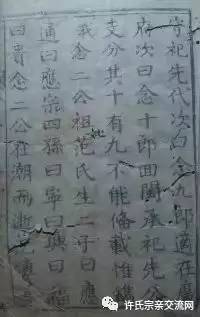 守祀先代次曰念九郎適在
府次曰念十郎面開承祀先公
支分其十有九不能備載惟
我念二公祖妣范氏生二子曰應
通曰應宗四孫曰寧曰曰福
曰貴念二公在潮州逝范
许氏宗亲交流网